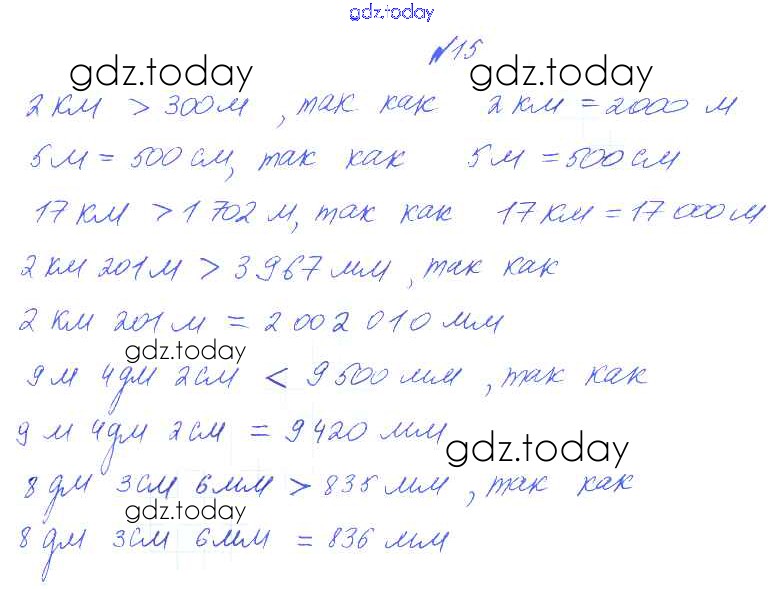 gdz.today
№15
gdz.today gdz.today
2 км > 300 м, так как 2 км = 2000 м
5 м = 500 см, так как 5 м = 500 см
17 км > 1 702 м, так как 17 км = 17 000 м
2 км 201 м > 3 967 мм, так как
2 км 201 м = 2 002 010 мм
gdz.today
9 м 4 дм 2 см < 9 500 мм, так как
9 м 4 дм 2 см = 9 420 мм
gdz.today
8 дм 3 см 6 мм > 835 мм, так как
gdz.today
8 дм 3 см 6 мм = 836 мм